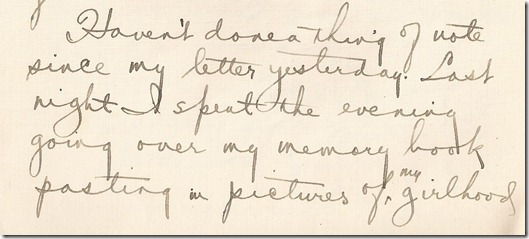 Haven't done a thing of note
since my letter yesterday. Last
night I spent the evening
going over my memory book
pasting in pictures of my girlhood